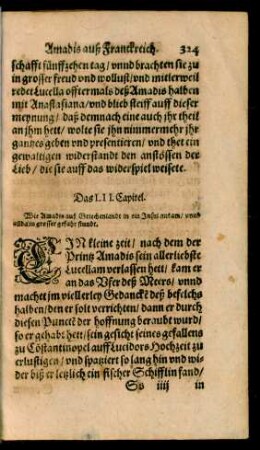 Amadis auß Franckreich. 324
schafft fünffzehen tag / vnnd brachten sie zu
in grosser freud vnd wollust / vnd mitlerweil
redet Lucella offtermals deß Amadis halben
mit Anastasiana / vnd blieb steiff auff dieser
meynung / daß demnach eine auch jhr theil
an jhm hett / wolte sie jhn nimmermehr jhr
gantzes geben vnd presentieren / vnd thet ein
gewaltigen widerstandt den anstössen der
Lieb / die sie auff das widerspiel weisete.
Das LII. Capitel.
Wie Amadis auß Griechenlandt in ein Insul ankam / vnnd
allda in grosser gefahr stunde.
EIN kleine zeit / nach dem der
Printz Amadis sein allerliebste
Lucellam verlassen hett / kam er
an das Vfer deß Meers / vnnd
machet jm vielerley Gedanckē deß befelchs
halben / den er solt verrichten / dann er durch
diesen Punctē der hoffnung beraubt wurd /
so er gehabt hett / sein gesicht seines gefallens
zu Cōstantinopel auff Lucidors Hochzeit zu
erlustigen / vnd spatziert so lang hin vnd wi-
der biß er letzlich ein fischer Schifflin fand /
Ss iiij in